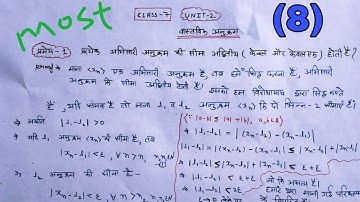 most
CLASS-7 UNIT-2
(8)
वास्तविक अनुक्रम
प्रमेय-1 प्रत्येक अभिसारी अनुक्रम की सीमा अद्वितीय (केवल और केवल एक) होती है।
माना <xn> एक अभिसारी अनुक्रम है, तब हमें सिद्ध करना है, अभिसारी
अनुक्रम की सीमा अद्वितीय होती है। इसको हम विरोधाभास द्वारा सिद्ध करते
है, यदि संभव है तो माना l1 व l2 अनुक्रम <xn> की दो भिन्न-2 सीमाएं हैं।
अर्थात |l1-l2| > 0
यदि l1 अनुक्रम <xn> की सीमा है, तब
|xn-l1|<ε, ∀ n>n1
l2 अनुक्रम की सीमा है-
|xn-l2|<ε, ∀ n>n2
∵ |a-b| ≤ |a|+|b|
⇒ |l1-l2| = |xn-l2-(xn-l1)|
⇒ |l1-l2| ≤ |xn-l2|+|xn-l1|
⇒ |l1-l2| < ε+ε
⇒ |l1-l2| < 2ε